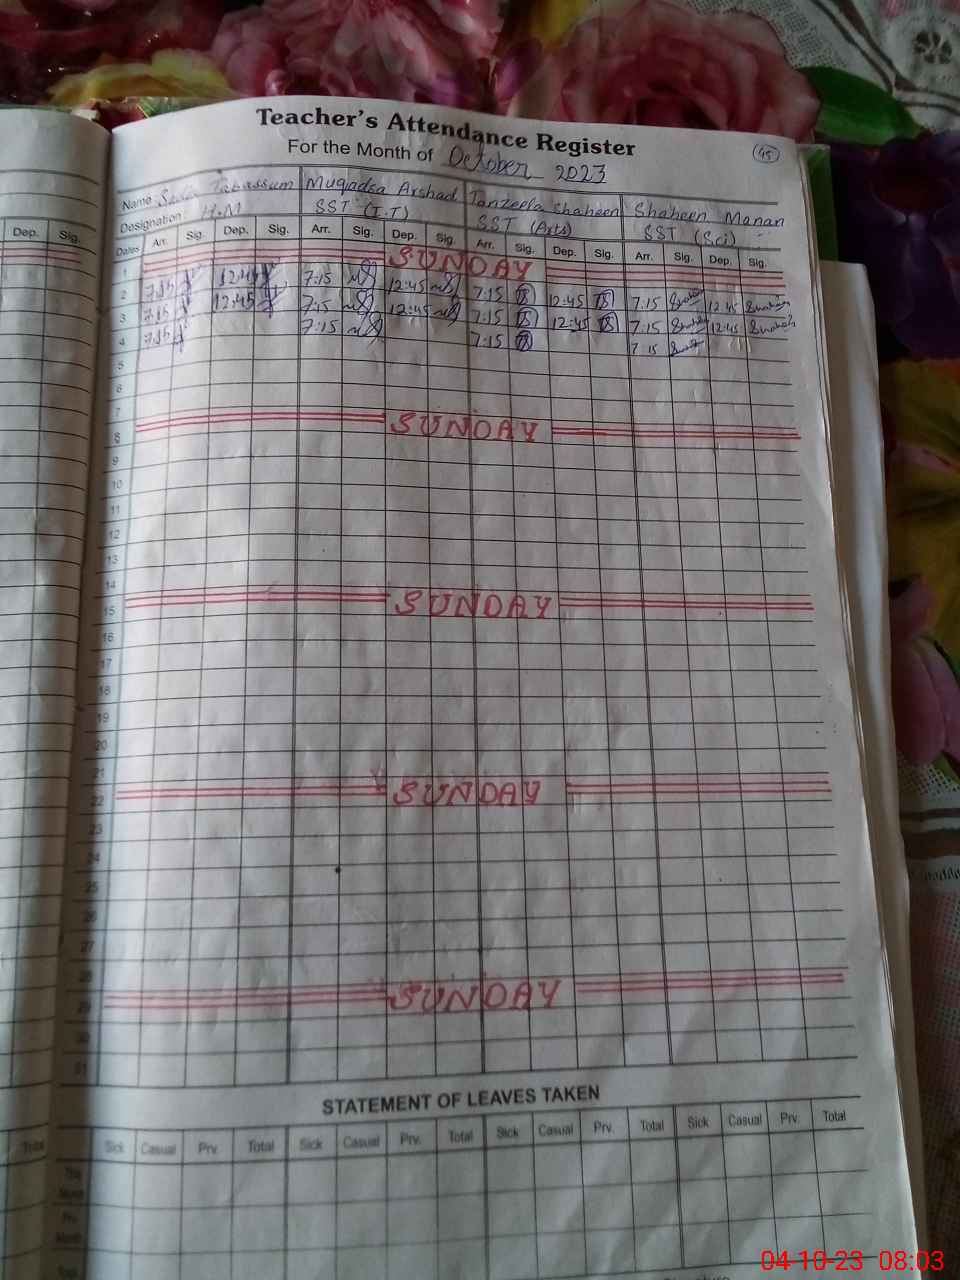 Teacher's Attendance Register
45
For the Month of October 2023
Name Tabassum Muqadsa Arshad Tanzeela Shaheen Shaheen Manan
Designation H.M SST (I.T) SST (Arts) SST (Sci)
Dep. Sig. Dates Arr. Sig. Dep. Sig. Arr. Sig. Dep. Sig. Arr. Sig. Dep. Sig. Arr. Sig. Dep. Sig.
1 SUNDAY
2 7:15 12:45 7:15 12:45 7:15 12:45 7:15 12:45
3 7:15 12:45 7:15 12:45 7:15 12:45 7:15 12:45
4 7:15 7:15 7:15 7 15
5
6
7
8 SUNDAY
9
10
11
12
13
14
15 SUNDAY
16
17
18
19
20
21
22 SUNDAY
23
24
25
26
27
28
29 SUNDAY
30
31
STATEMENT OF LEAVES TAKEN
Total Sick Casual Prv. Total Sick Casual Prv. Total Sick Casual Prv. Total Sick Casual Prv. Total
04-10-23 08:03